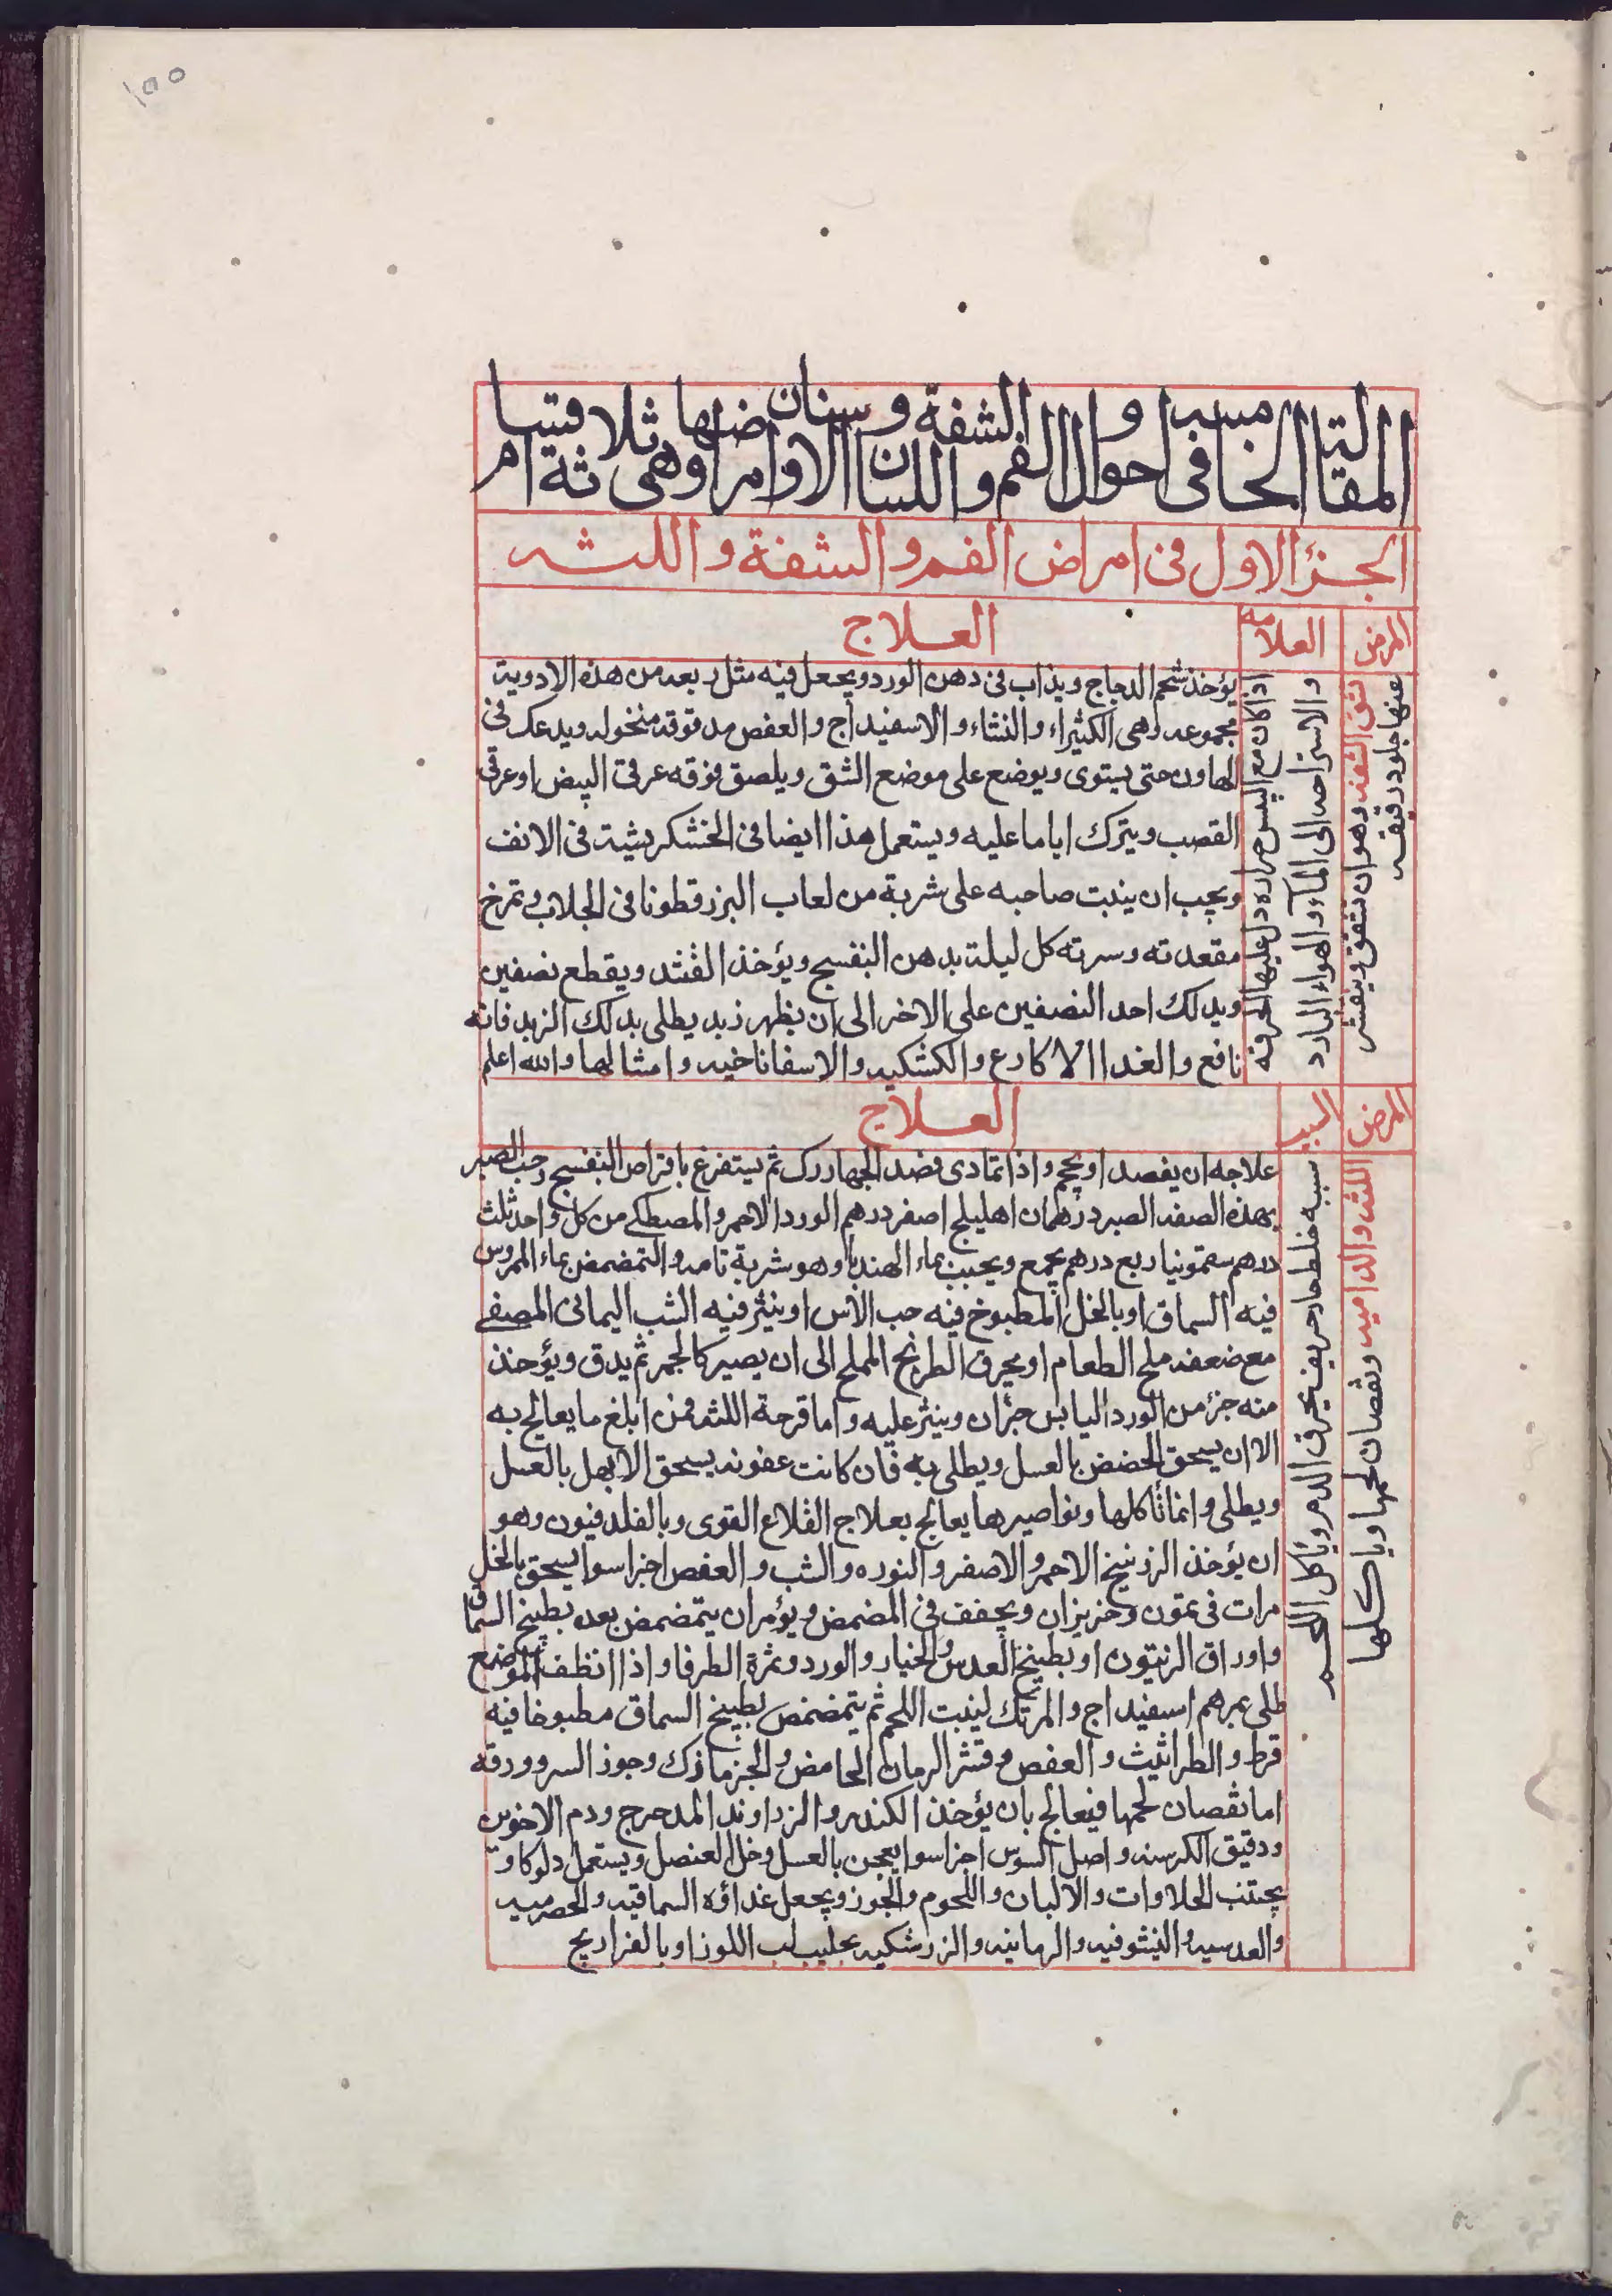 المقالة الخامسه في احوال الفم والشفة واللسان والاسنان وامراضها وهى ثلاثة اقسام
الجزؤ الاول فى امراض الفم والشفة واللثه
المرض
العلامه
العلاج
شق الشفه وهو ان تتشقق ويتقشر
عنها جلود رقيقه
اذا كان مع اليبس حراره دل عليها الحرقه
والاستراحه الى الماء والهواء البارد
يؤخذ شحم الدجاج ويذاب فى دهن الورد ويجعل فيه مثل ربعه من هذه الادوية
مجموعه وهى الكثيراء والنشاء والاسفيداج والعفص مدقوقه منخوله ويدعك فى
الهاون حتى يستوى ويوضع على موضع الشق ويلصق فوقه عرقى البيض او عرقى
القصب ويترك اياما عليه ويستعمل هذا ايضا فى الخشكريشية فى الانف
ويجب ان يثبت صاحبه على شربة من لعاب البزرقطونا فى الجلاب وتمرخ
مقعدته وسرته كل ليلة بدهن البنفسج ويؤخذ القثد ويقطع نصفين
ويدلك احد النصفين على الاخر الى ان يظهر زبد يطلى بذلك الزبد فانه
نافع والغدا الاكارع والكشكيه والاسفاناخيه وامثالها والله اعلم
المرض
السبب
العلاج
اللثه والداميه ونقصان لحمها وتاكلها
سببه خلط حار حريف يحرق الدم وياكل اللحم
علاجه ان يفصد او يحجم واذا تمادى فصد الجهاررك ثم يستفرغ باقراص البنفسج وحب الصبر
بهذه الصفه الصبر درهمان اهليلج اصفر درهم الورد الاحمر والمصطكى من كل واحد ثلث
درهم سقمونيا ربع درهم يجمع ويحبب بماء الهندبا وهو شربة تامه والتمضمض بماء الممروس
فيه السماق او بالخل المطبوخ فيه حب الآس او ينثر فيه الشب اليمانى المصفى
مع ضعفه ملح الطعام او يحرق الطريخ المملح الى ان يصير كالجمر ثم يدق ويؤخذ
منه جزؤ من الورد اليابس جزآن وينثر عليه واما قرحة اللثه فمن ابلغ ما يعالج به
الا ان يسحق الحضض بالعسل ويطلى به فان كانت عفونه يسحق الابهل بالعسل
ويطلى وانما تأكلها ونواصيرها يعالج بعلاج القلاع القوى وبالفلدفيون وهو
ان يؤخذ الزرنيخ الاحمر والاصفر والنوره والشب والعفص اجزا سوا يسحق بالخل
مرات فى تموز وحزيران ويجفف فى المضمض ويؤمر ان يتمضمض بعده بطبيخ السماق
واوراق الزيتون او بطبيخ العدس والخيار والورد وثمرة الطرفا واذا انظف الموضع
طلى بمرهم اسفيداج والمرتك لينبت اللحم ثم يتمضمض بطبيخ السماق مطبوخا فيه
قرط والطراثيث والعفص وقشر الرمان الحامض والجزمازك وجوز السرو ورقه
اما نقصان لحمها فيعالج بان يؤخذ الكندر والزراوند المدحرج ودم الاخوين
ودقيق الكرسنه واصل السوس اجزا سوا يعجن بالعسل وخل العنصل ويستعمل دلوكا و
يجتنب الحلاوات والالبان واللحوم والجوز ويجعل غداؤه السماقيه والحصرميه
والعدسيه والنيشوفيه والرمانيه والزرشكيه بحليب لب اللوز او بالفراريج